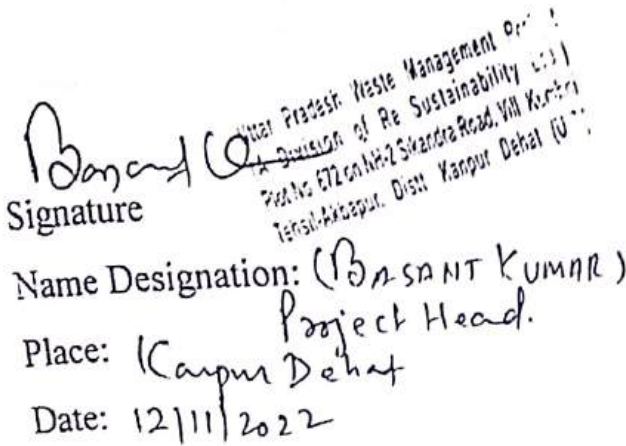 Uttar Pradesh Waste Management
(A Division of Re Sustainability
Plot No 672 on NH-2 Sikandra Road, Vill
Tehsil-Akbapur, Distt Kanpur Dehat (U
Basant
Signature
Name Designation: (BASANT KUMAR)
Project Head.
Place: Kanpur Dehat
Date: 12/11/2022